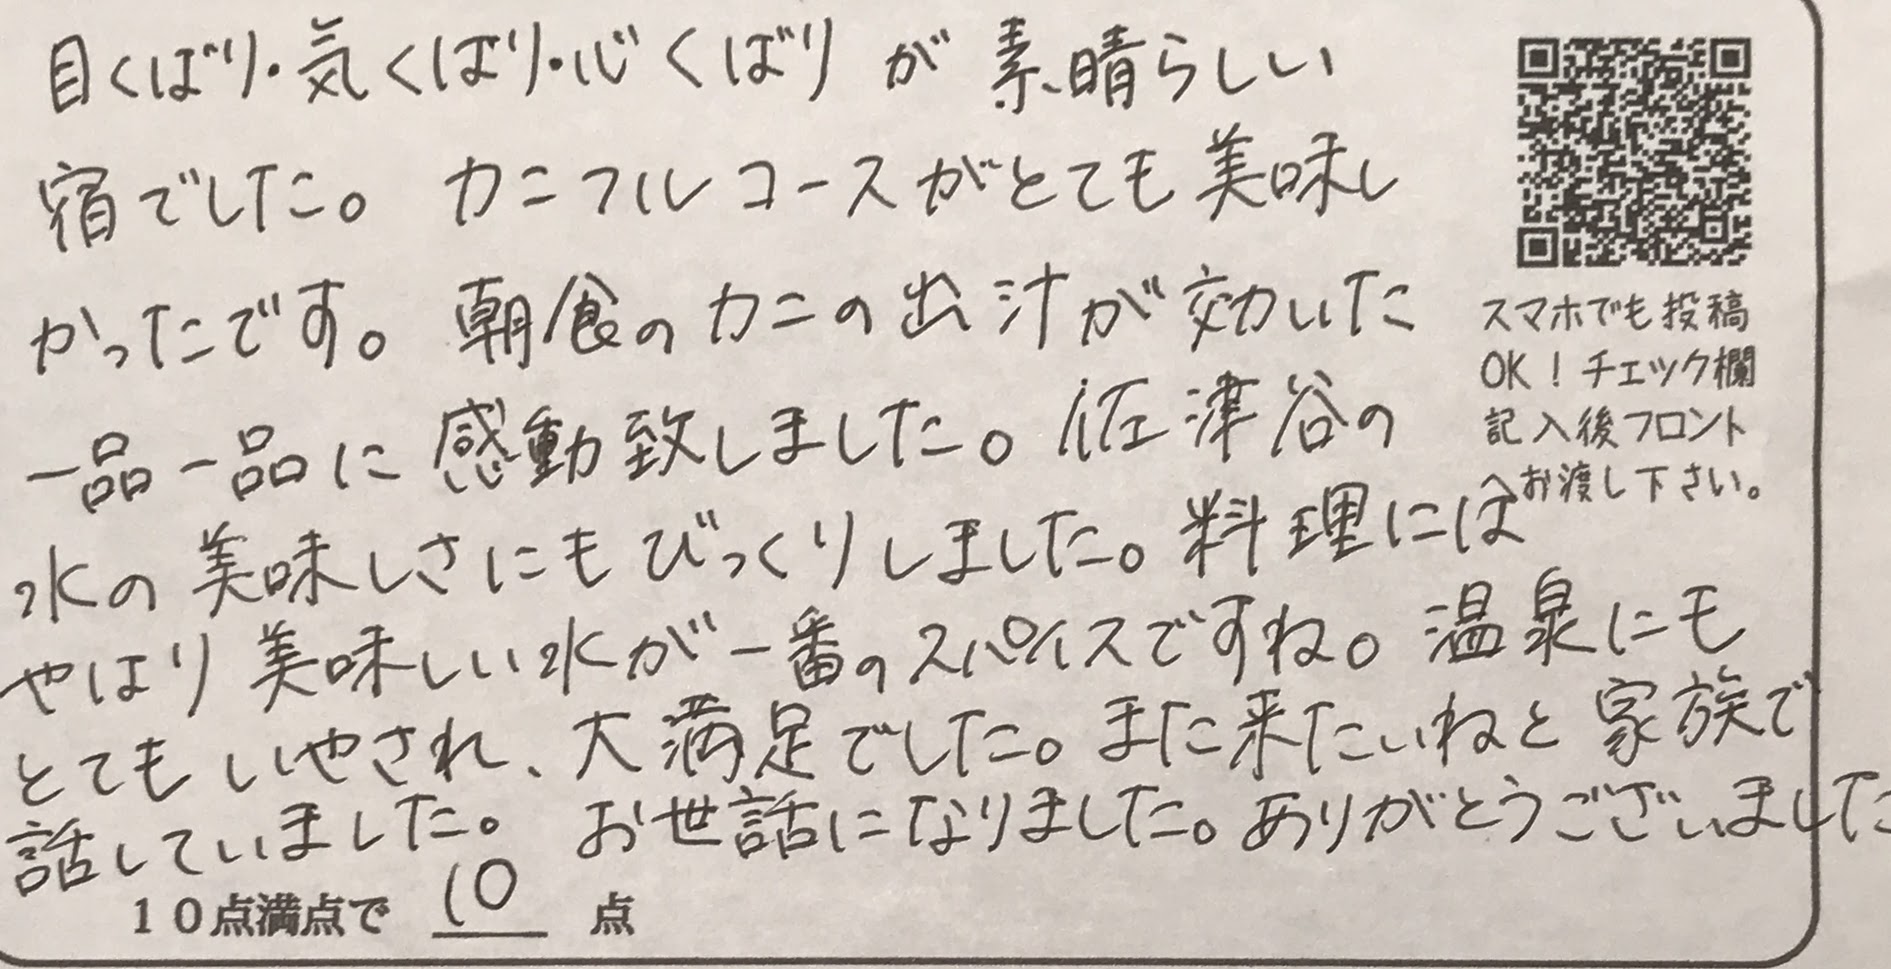 目くばり・気くばり・心くばりが素晴らしい
宿でした。カニフルコースがとても美味し
かったです。朝食のカニの出汁が効いた
一品一品に感動致しました。佐津谷の
水の美味しさにもびっくりしました。料理には
やはり美味しい水が一番のスパイスですね。温泉にも
とてもいやされ、大満足でした。また来たいねと家族で
話していました。お世話になりました。ありがとうございました
10点満点で 10 点
スマホでも投稿
OK！チェック欄
記入後フロント
へお渡し下さい。